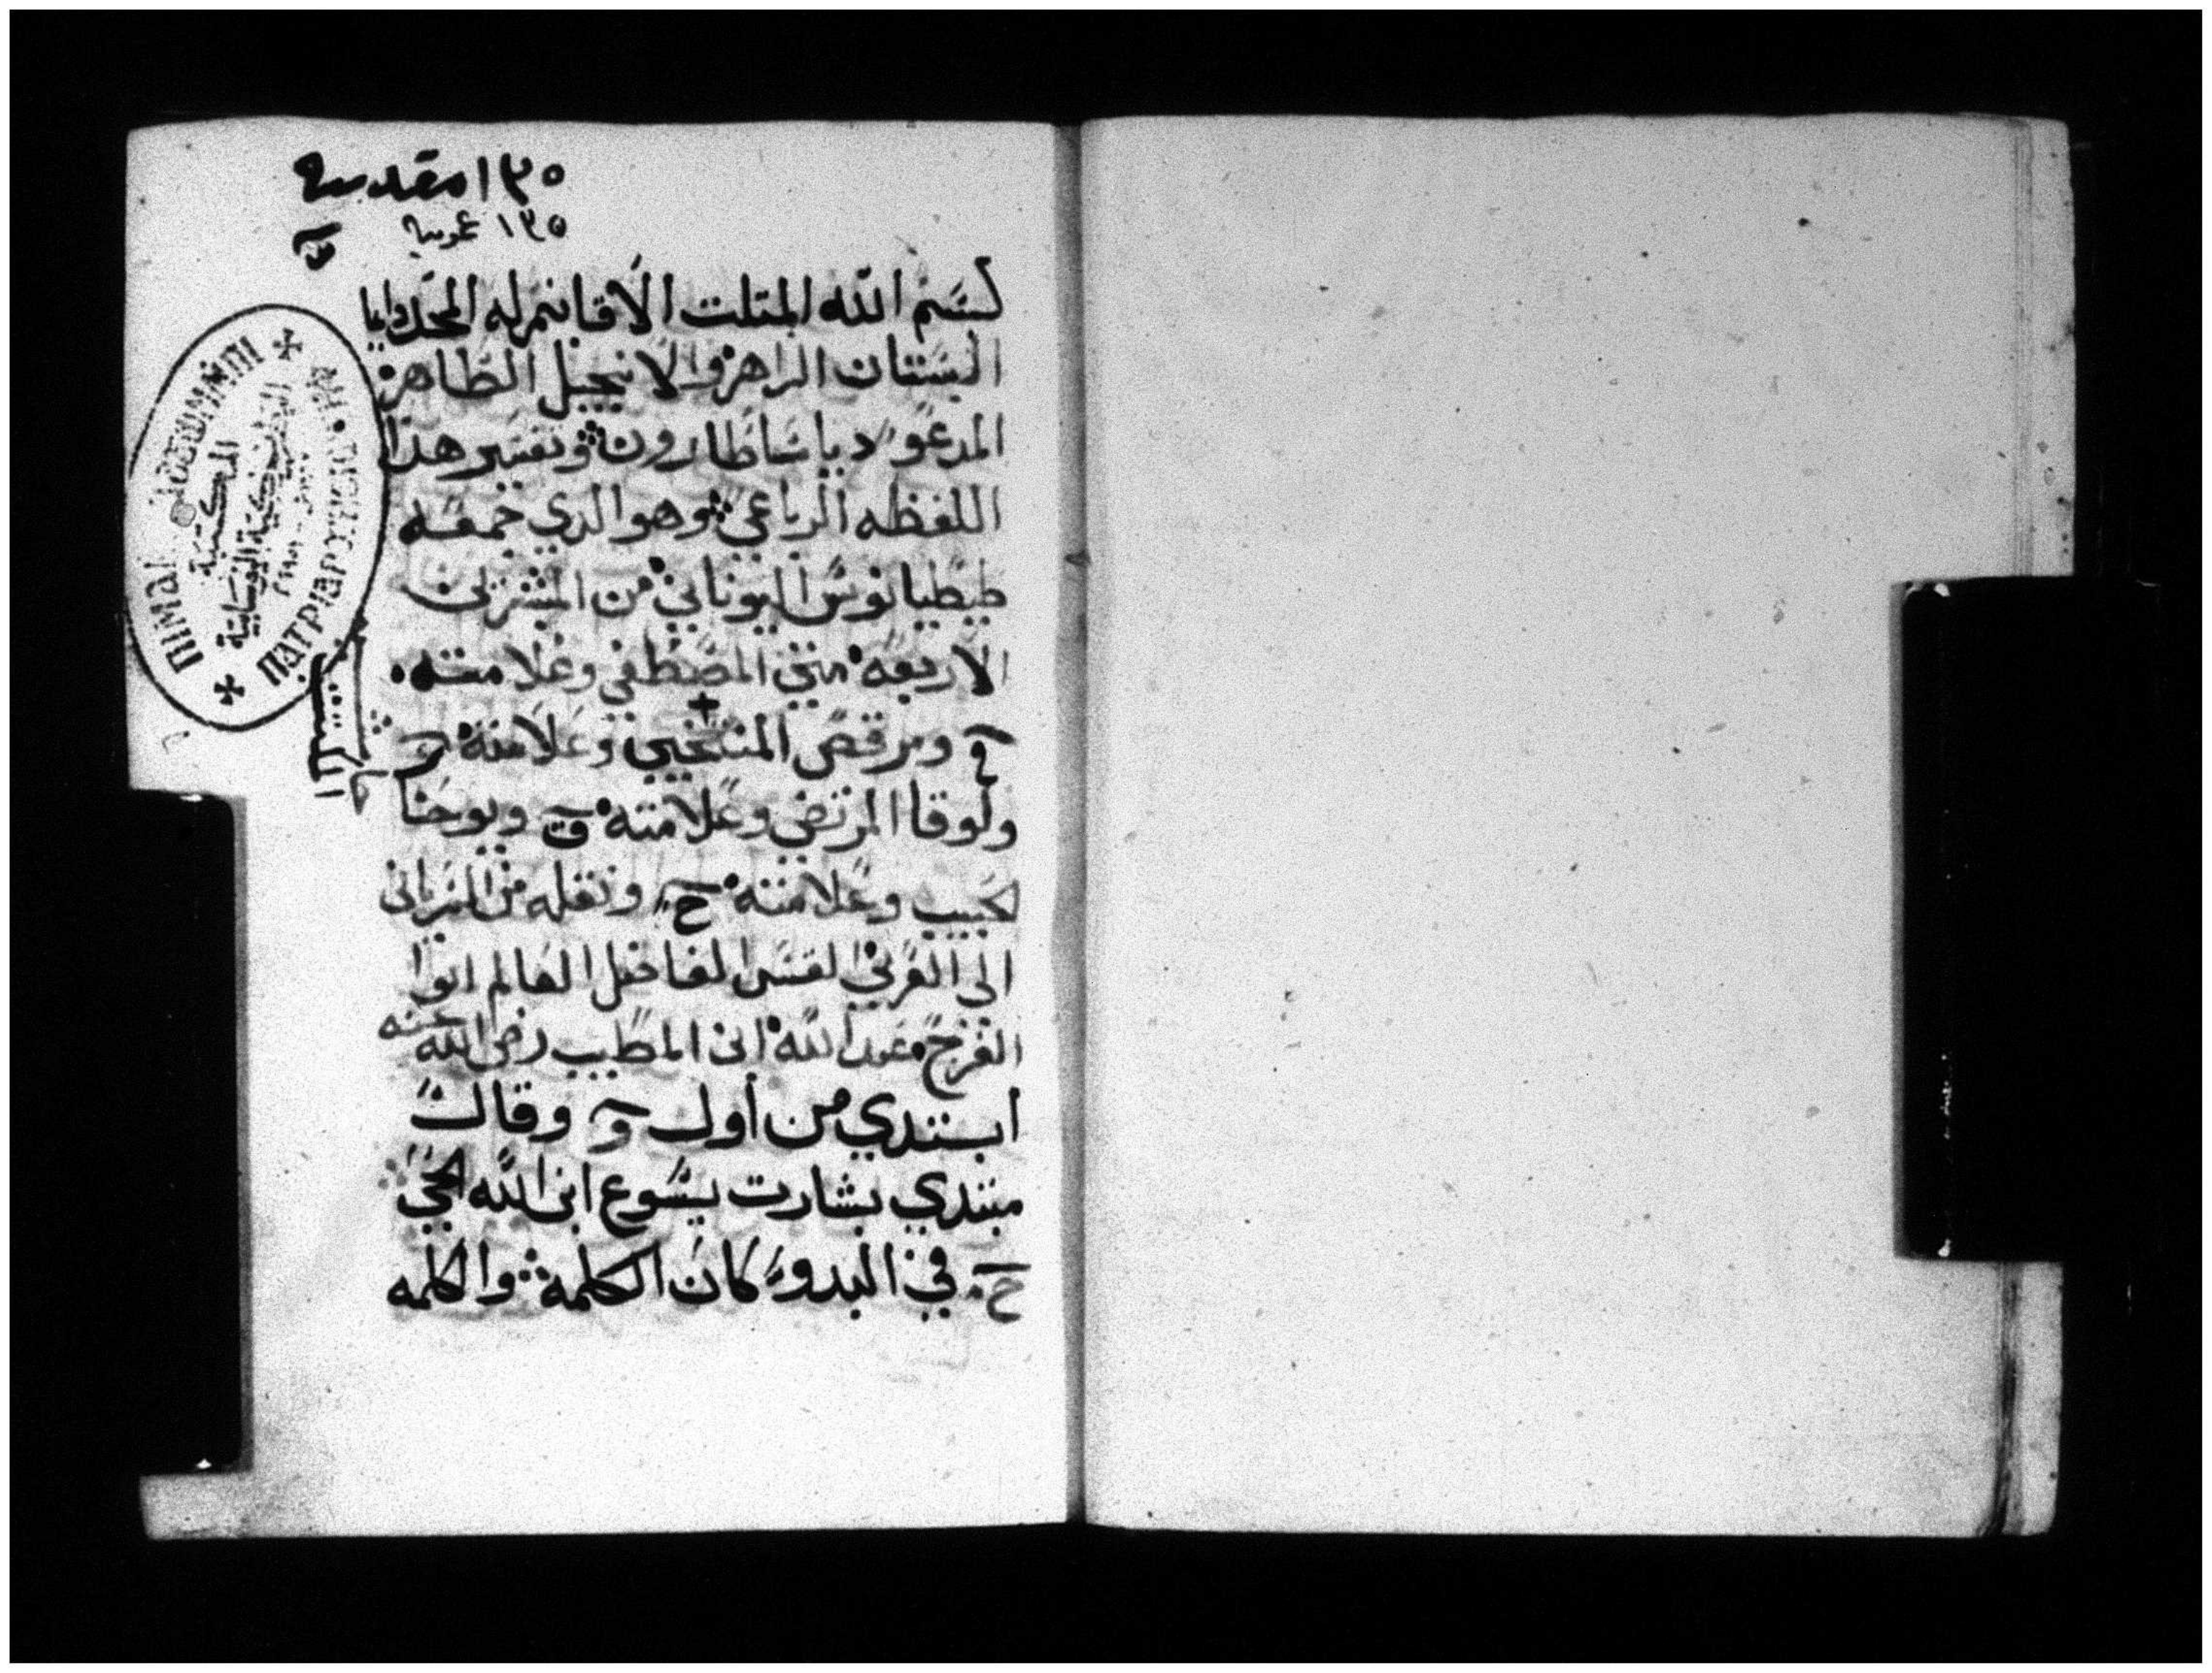 ١٣٥ مقدسه
١٣٥ عربيه
بسم الله المتلت الاقانيم له المجد دايما
البستان الزاهر والانجيل الطاهر
المدعو دياساطارون وتفسير هدا
اللفظه الرباعي وهو الدي جمعه
طيطيانوس اليوناني من المبشرين
الاربعه متي المصطفي وعلامته
ومرقص المنتخب وعلامته ر
ولوقا المرتضي وعلامته ق ويوحنا
الحبيب وعلامته ح ونقله من السرياني
الى العربي القس الفاضل العالم ابوا
الفرج عبد الله ابن الطيب رضي الله عنه
ابتدي من أول وقال
مبتدي بشارت يسوع ابن الله الحي
ح في البدو كان الكلمة والكلمه
المكتبة
البطريركية القبطية
ΠΙΜΑΙ